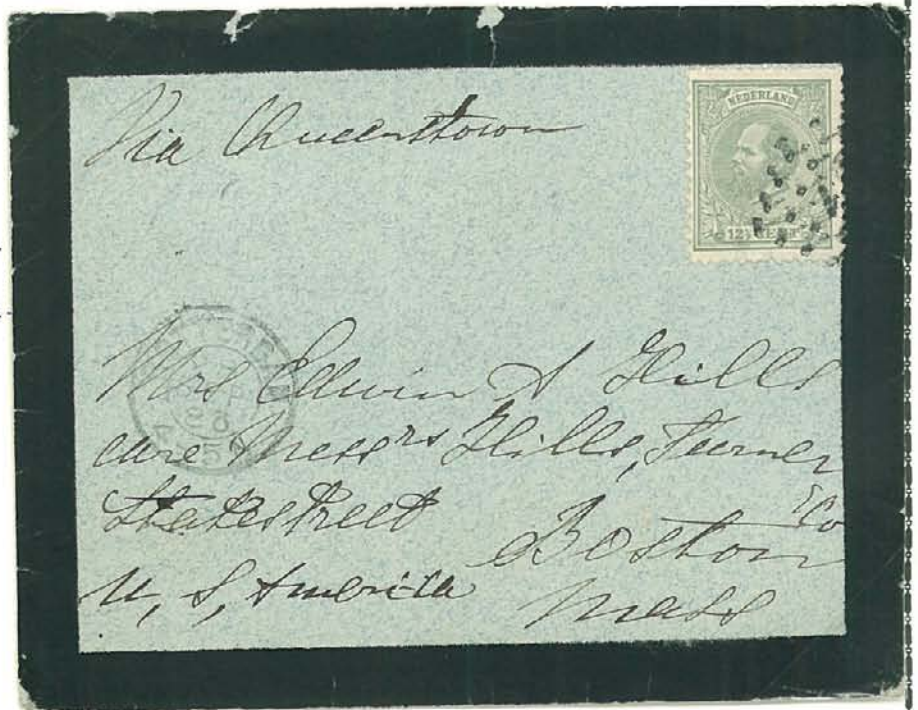 Via Queenstown
NEDERLAND
12½ CENT
Mrs Edwin A Hills
care Messrs Hills, Turner
& Co
Statestreet
Boston
U, S, America
Mass